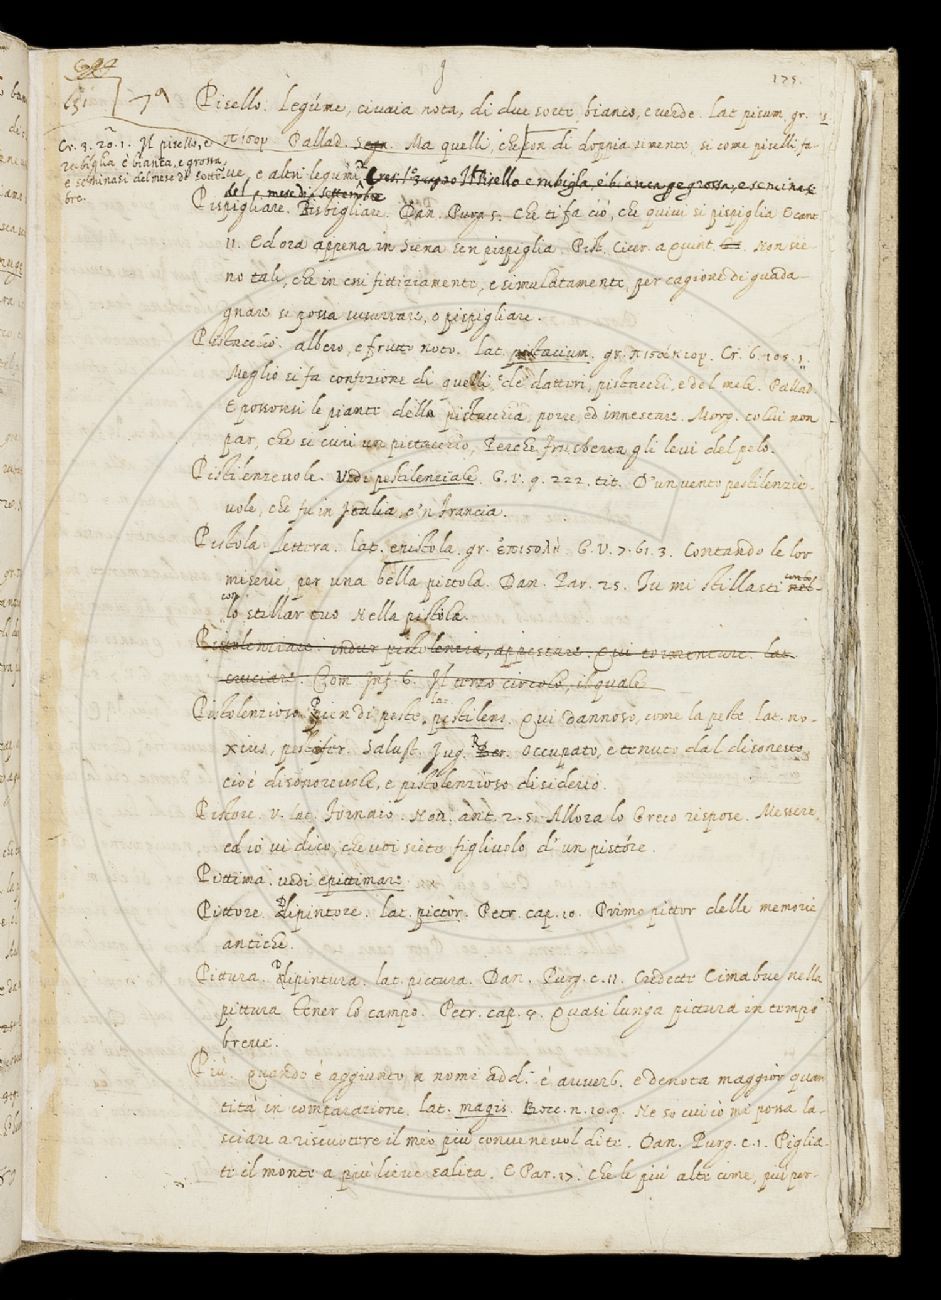 175.
651
7ª
Cr. 3. 20. 1. Il pisello, e
rubiglia è bianca, e grossa,
e seminasi del mese di settem
bre.
Pisello. Legúme, civaia nota, di due sorte bianco, e verde. Lat. pisum, gr.
πίσον Pallad. Segn. Ma quelli, che son di doppia semente, si come piselli fa-
ve, e altri legumi. Cres. Il Pisello e rubiglia, è bianca e grossa, e seminasi
del mese di settembre
Pispigliare. Bisbigliare. Dan. Purg. 5. Che ti fa ciò, che quivi si pispiglia E cant.
11. Ed ora appena in Siena sen pispiglia. Pist. Cicer. a Quint. Non sie-
no tali, che in cui fittiziamente, e simulatamente, per cagione di guada-
gnare si possa susurrare, o pispigliare.
Pistacchio. albero, e frutto noto. Lat. pistacium. gr. πιστάκιον. Cr. 6. 105. 1.
Meglio si fa confezione di quelli, e de' datteri, pistacchi, e del mele. Pallad.
E possonsi le piante della pistacchia, porre, ed innestare. Morg. costui non
par, che si curi un pistacchio, Perche Frusberta gli levi del pelo.
Pistilenzevole. Vedi pestilenziale. G. V. 9. 222. tit. D'un vento pestilenzie-
vole, che fu in Italia, e 'n Francia.
Pistola. Lettera. Lat. epistola. gr. ἐπιστολή. G. V. 7. 61. 3. Contando le lor
miserie per una bella pistola. Dan. Par. 25. Tu mi stillasti
con
lo stillar tuo nella pistola.
Pistolenziare. indur pistolenzia, appestare. Qui tormentare. Lat.
cruciare. Com. Inf. 6. Il terzo circolo, il quale
Pistolenzioso. Pien di peste. lat. pestilens. Qui dannoso, come la peste. Lat. no-
xius, pestifer. Salust. Jug. R. Occupato, e tenuto dal disonesto
cioè disonorevole, e pistolenzioso disiderio.
Pistore. V. lat. Fornaio. Nov. ant. 2. 5. Allora lo Greco rispose. Messere,
ed io vi dico, che voi siete figlivolo d'un pistóre.
Pittima. vedi epittimare.
Pittore. Dipintore. lat. pictor. Petr. cap. 10. Primo pittor delle memorie
antiche.
Pittura. Dipintura. lat. pictura. Dan. Purg. c. 11. Credette Cimabue nella
pittura Tener lo campo. Petr. cap. 9. Quasi lunga pittura in tempo
breve.
Più. Quando è aggiunto a nomi add. è avverb. e denota maggior quan-
tità in comparazione. Lat. magis. Bocc. n. 10. 9. Ne so cui io mi possa la-
sciare a riscuotere il mio più convenevol di te. Dan. Purg. c. 1. Piglia-
ti il monte a più lieve salita. E Par. 17. Che le più alte cime, più per-